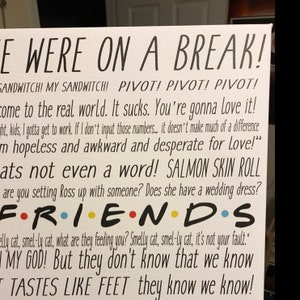 E WERE ON A BREAK!
SANDWITCH! MY SANDWITCH! PIVOT! PIVOT! PIVOT!
come to the real world. It sucks. You're gonna love it!
ght, kids, I gotta get to work. If I don't input those numbers... it doesn't make much of a difference
m hopeless and awkward and desperate for love!"
ats not even a word! SALMON SKIN ROLL
are you setting Ross up with someone? Does she have a wedding dress?
F·R·I·E·N·D·S
elly cat, smel-ly cat, what are they feeding you? Smelly cat, smel-ly cat, it's not your fault."
H MY GOD! But they don't know that we know
T TASTES LIKE FEET they know we know!